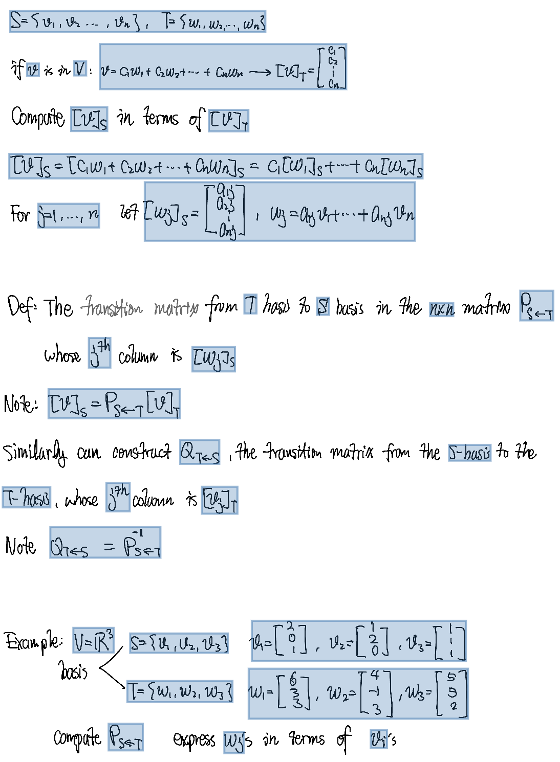 S = {v₁, v₂ ..., vₙ}, T = {w₁, w₂, ..., wₙ}
if v is in V: v = c₁w₁ + c₂w₂ + ⋯ + cₙwₙ → [v]_T = [c₁ c₂ ⋮ cₙ]
Compute [v]_S in terms of [v]_T
[v]_S = [c₁w₁ + c₂w₂ + ⋯ + cₙwₙ]_S = c₁[w₁]_S + ⋯ + cₙ[wₙ]_S
For j=1, ..., n let [wⱼ]_S = [a₁ⱼ a₂ⱼ ⋮ aₙⱼ], wⱼ = a₁ⱼv₁ + ⋯ + aₙⱼvₙ
Def: The transition matrix from T basis to S basis in the n×n matrix P_{S←T}
whose jth column is [wⱼ]_S
Note: [v]_S = P_{S←T} [v]_T
Similarly can construct Q_{T←S}, the transition matrix from the S-basis to the
T-basis, whose jth column is [vⱼ]_T
Note Q_{T←S} = P⁻¹_{S←T}
Example: V=ℝ³ S={v₁, v₂, v₃} v₁=[2 0 1], v₂=[1 2 0], v₃=[1 1 1]
basis
T={w₁, w₂, w₃} w₁=[6 3 3], w₂=[4 -1 3], w₃=[5 5 2]
compute P_{S←T} express wⱼ's in terms of vᵢ's